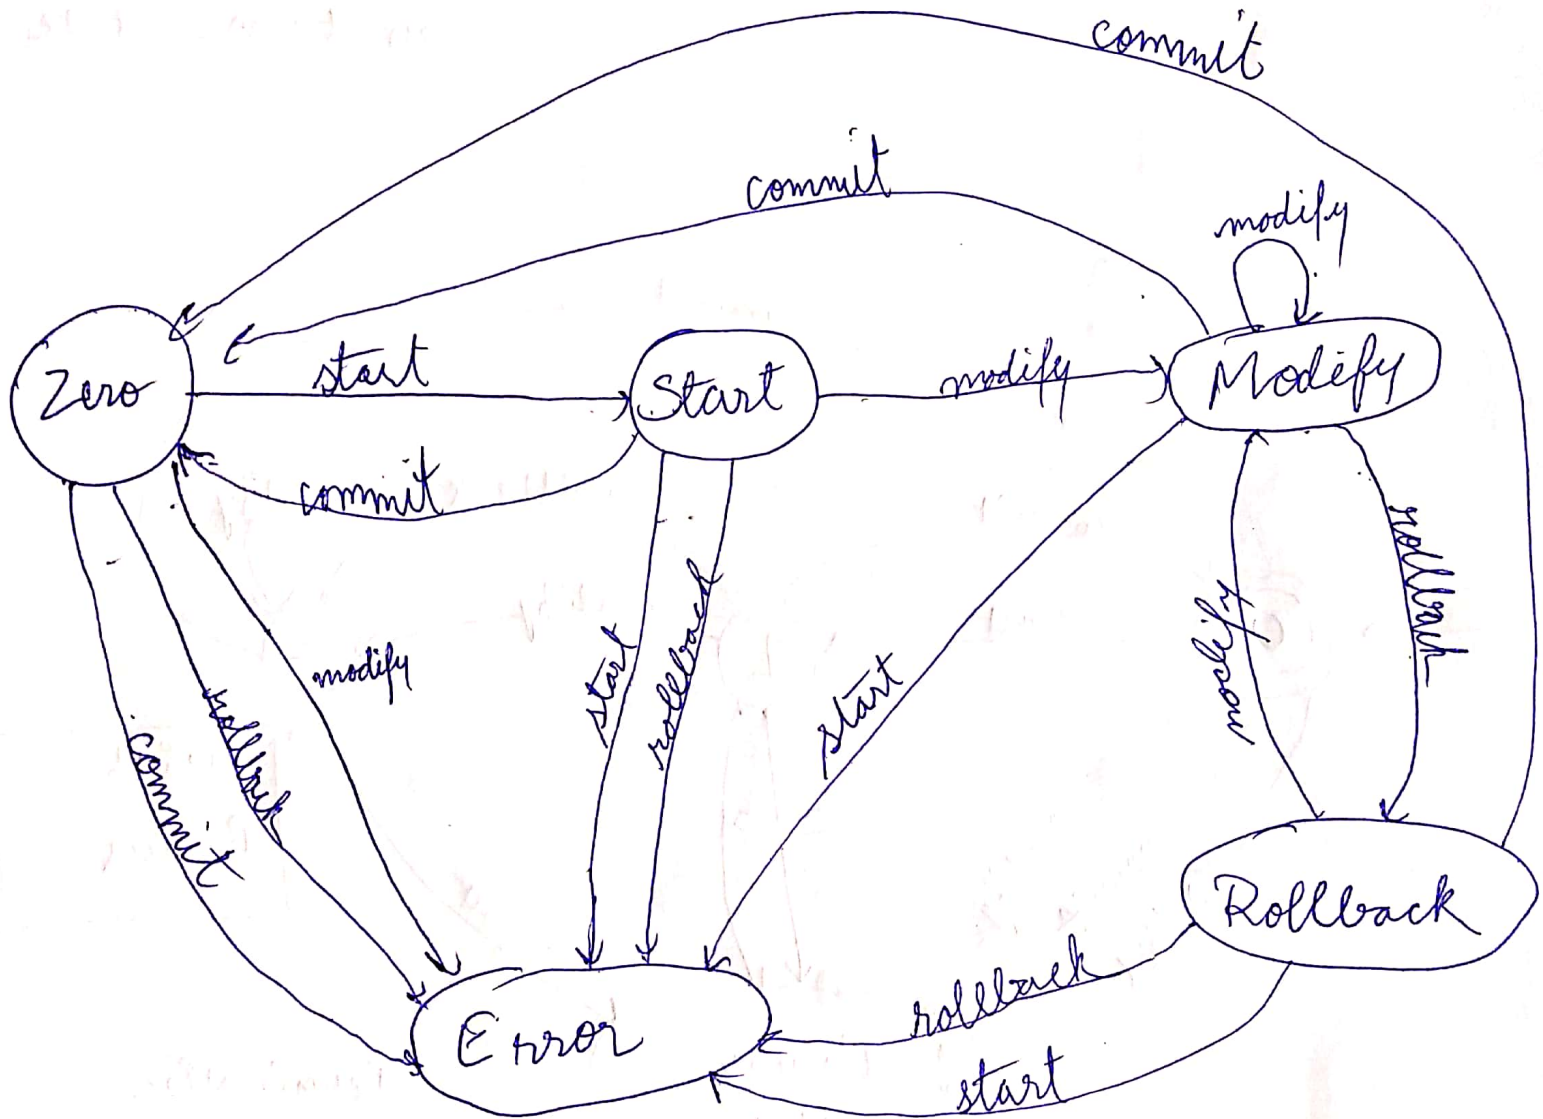 commit
commit
modify
Zero
start
Start
modify
Modify
commit
rollback
modify
modify
start
rollback
start
rollback
commit
Rollback
rollback
Error
start